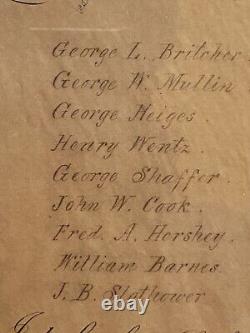 George L. Britcher
George W. Mullin
George Heiges.
Henry Wentz.
George Shaffer.
John W. Cook.
Fred. A. Hershey.
William Barnes.
J. B. Slothower
worthpoint